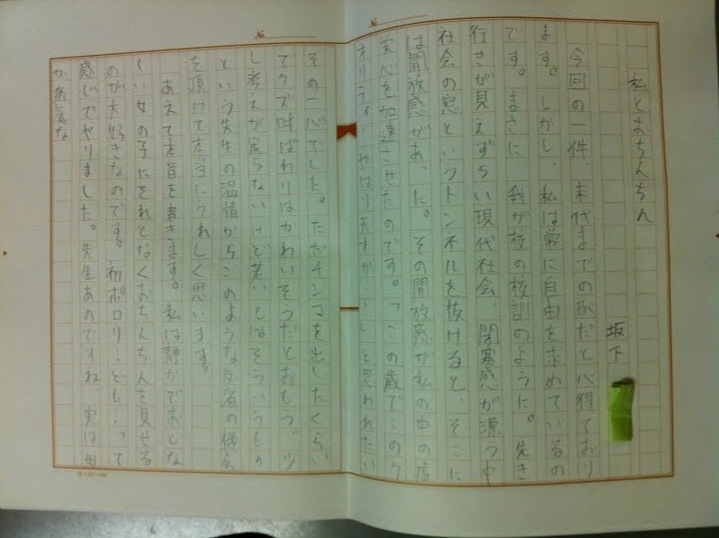 私とおちんちん
坂下
今回の一件、末代までの恥だと心得ており
ます。しかし、私は常に自由を求めているの
です。まさに、我が校の校訓のように。先き
行きが見えずらい現代社会、閉塞感が漂う中
社会の窓というトンネルを抜けると、そこに
は開放感があった。その開放感が私の中の
心を加速させたのです。「この歳でこの
やはり天才か…」と思われたい
その一心でした。ただチンコを出したくらい
でクズ呼ばわりはかわいそうだとおもう。少
し考えが足らないけど若いとはそういうもの
という先生の温情からこのような反省の機会
を頂けて本当にうれしく思います。
あえて本音を書きます。私は静かでおとな
しい女の子にそれとなくおちんちんを見せる
のが大好きなのです。初ポロリ…ども…って
感じでヤりました。先生あのですね、実は母
が病気な